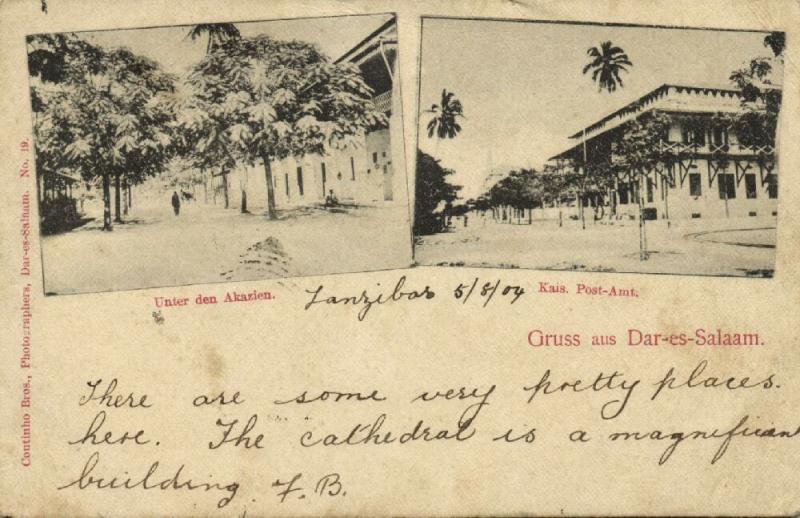 Coutinho Bros., Photographers, Dar-es-Salaam. No. 19.
Unter den Akazien.
Zanzibar 5/8/04
Kais. Post-Amt.
Gruss aus Dar-es-Salaam.
There are some very pretty places.
here. The cathedral is a magnificent
building. F. B.